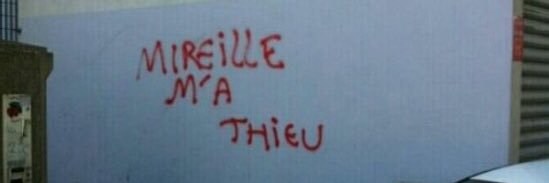 MIREILLE
M'A
THIEU